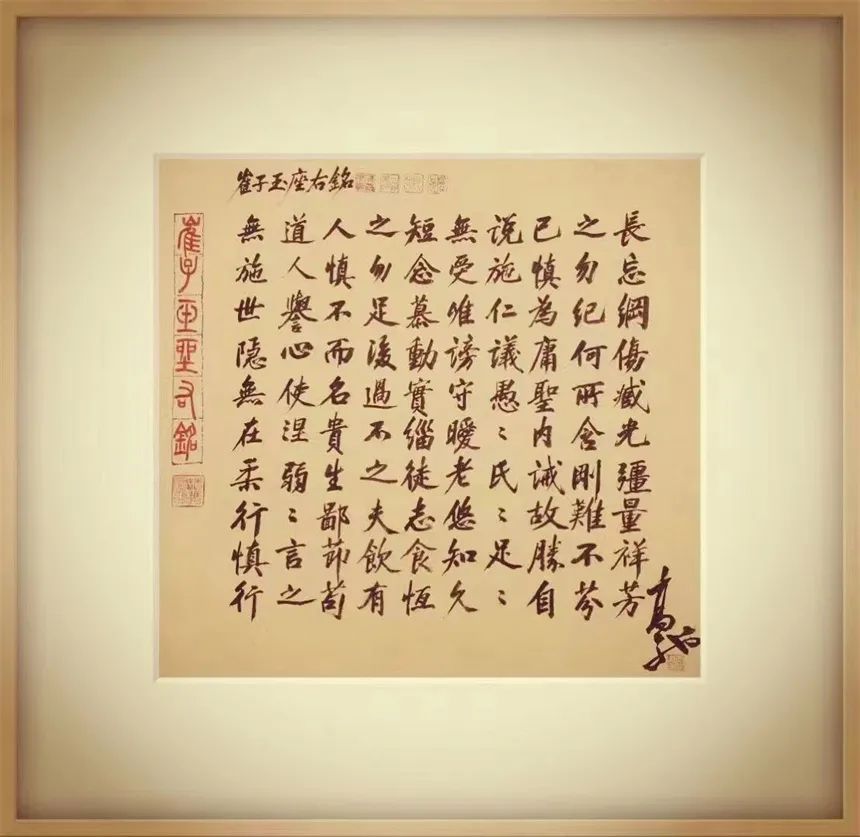 崔子玉座右銘
崔子玉座右銘
無道人之短無説己之長
施人慎勿念受施慎勿忘
世譽不足慕唯仁為紀綱
隱心而後動謗議庸何傷
無使名過實守愚聖所臧
在涅貴不緇曖〻内含光
柔弱生之徒老氏誡剛疆
行〻鄙夫志悠〻故難量
慎言莭飲食知足勝不祥
行之苟有恆久〻自芬芳